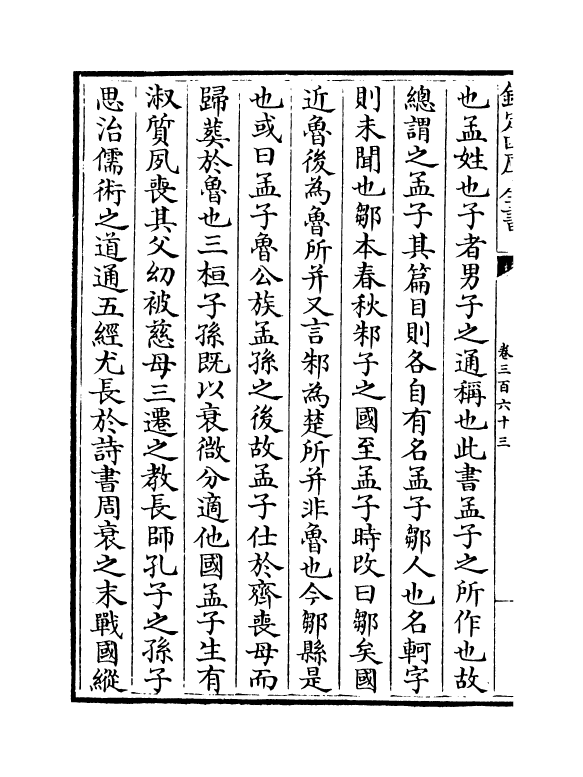 欽定四庫全書
卷三百六十三
也孟姓也子者男子之通稱也此書孟子之所作也故
總謂之孟子其篇目則各自有名孟子鄒人也名軻字
則未聞也鄒本春秋邾子之國至孟子時改曰鄒矣國
近魯後為魯所并又言邾為楚所并非魯也今鄒縣是
也或曰孟子魯公族孟孫之後故孟子仕於齊喪母而
歸葬於魯也三桓子孫既以衰微分適他國孟子生有
淑質夙喪其父幼被慈母三遷之教長師孔子之孫子
思治儒術之道通五經尤長於詩書周衰之末戰國縱